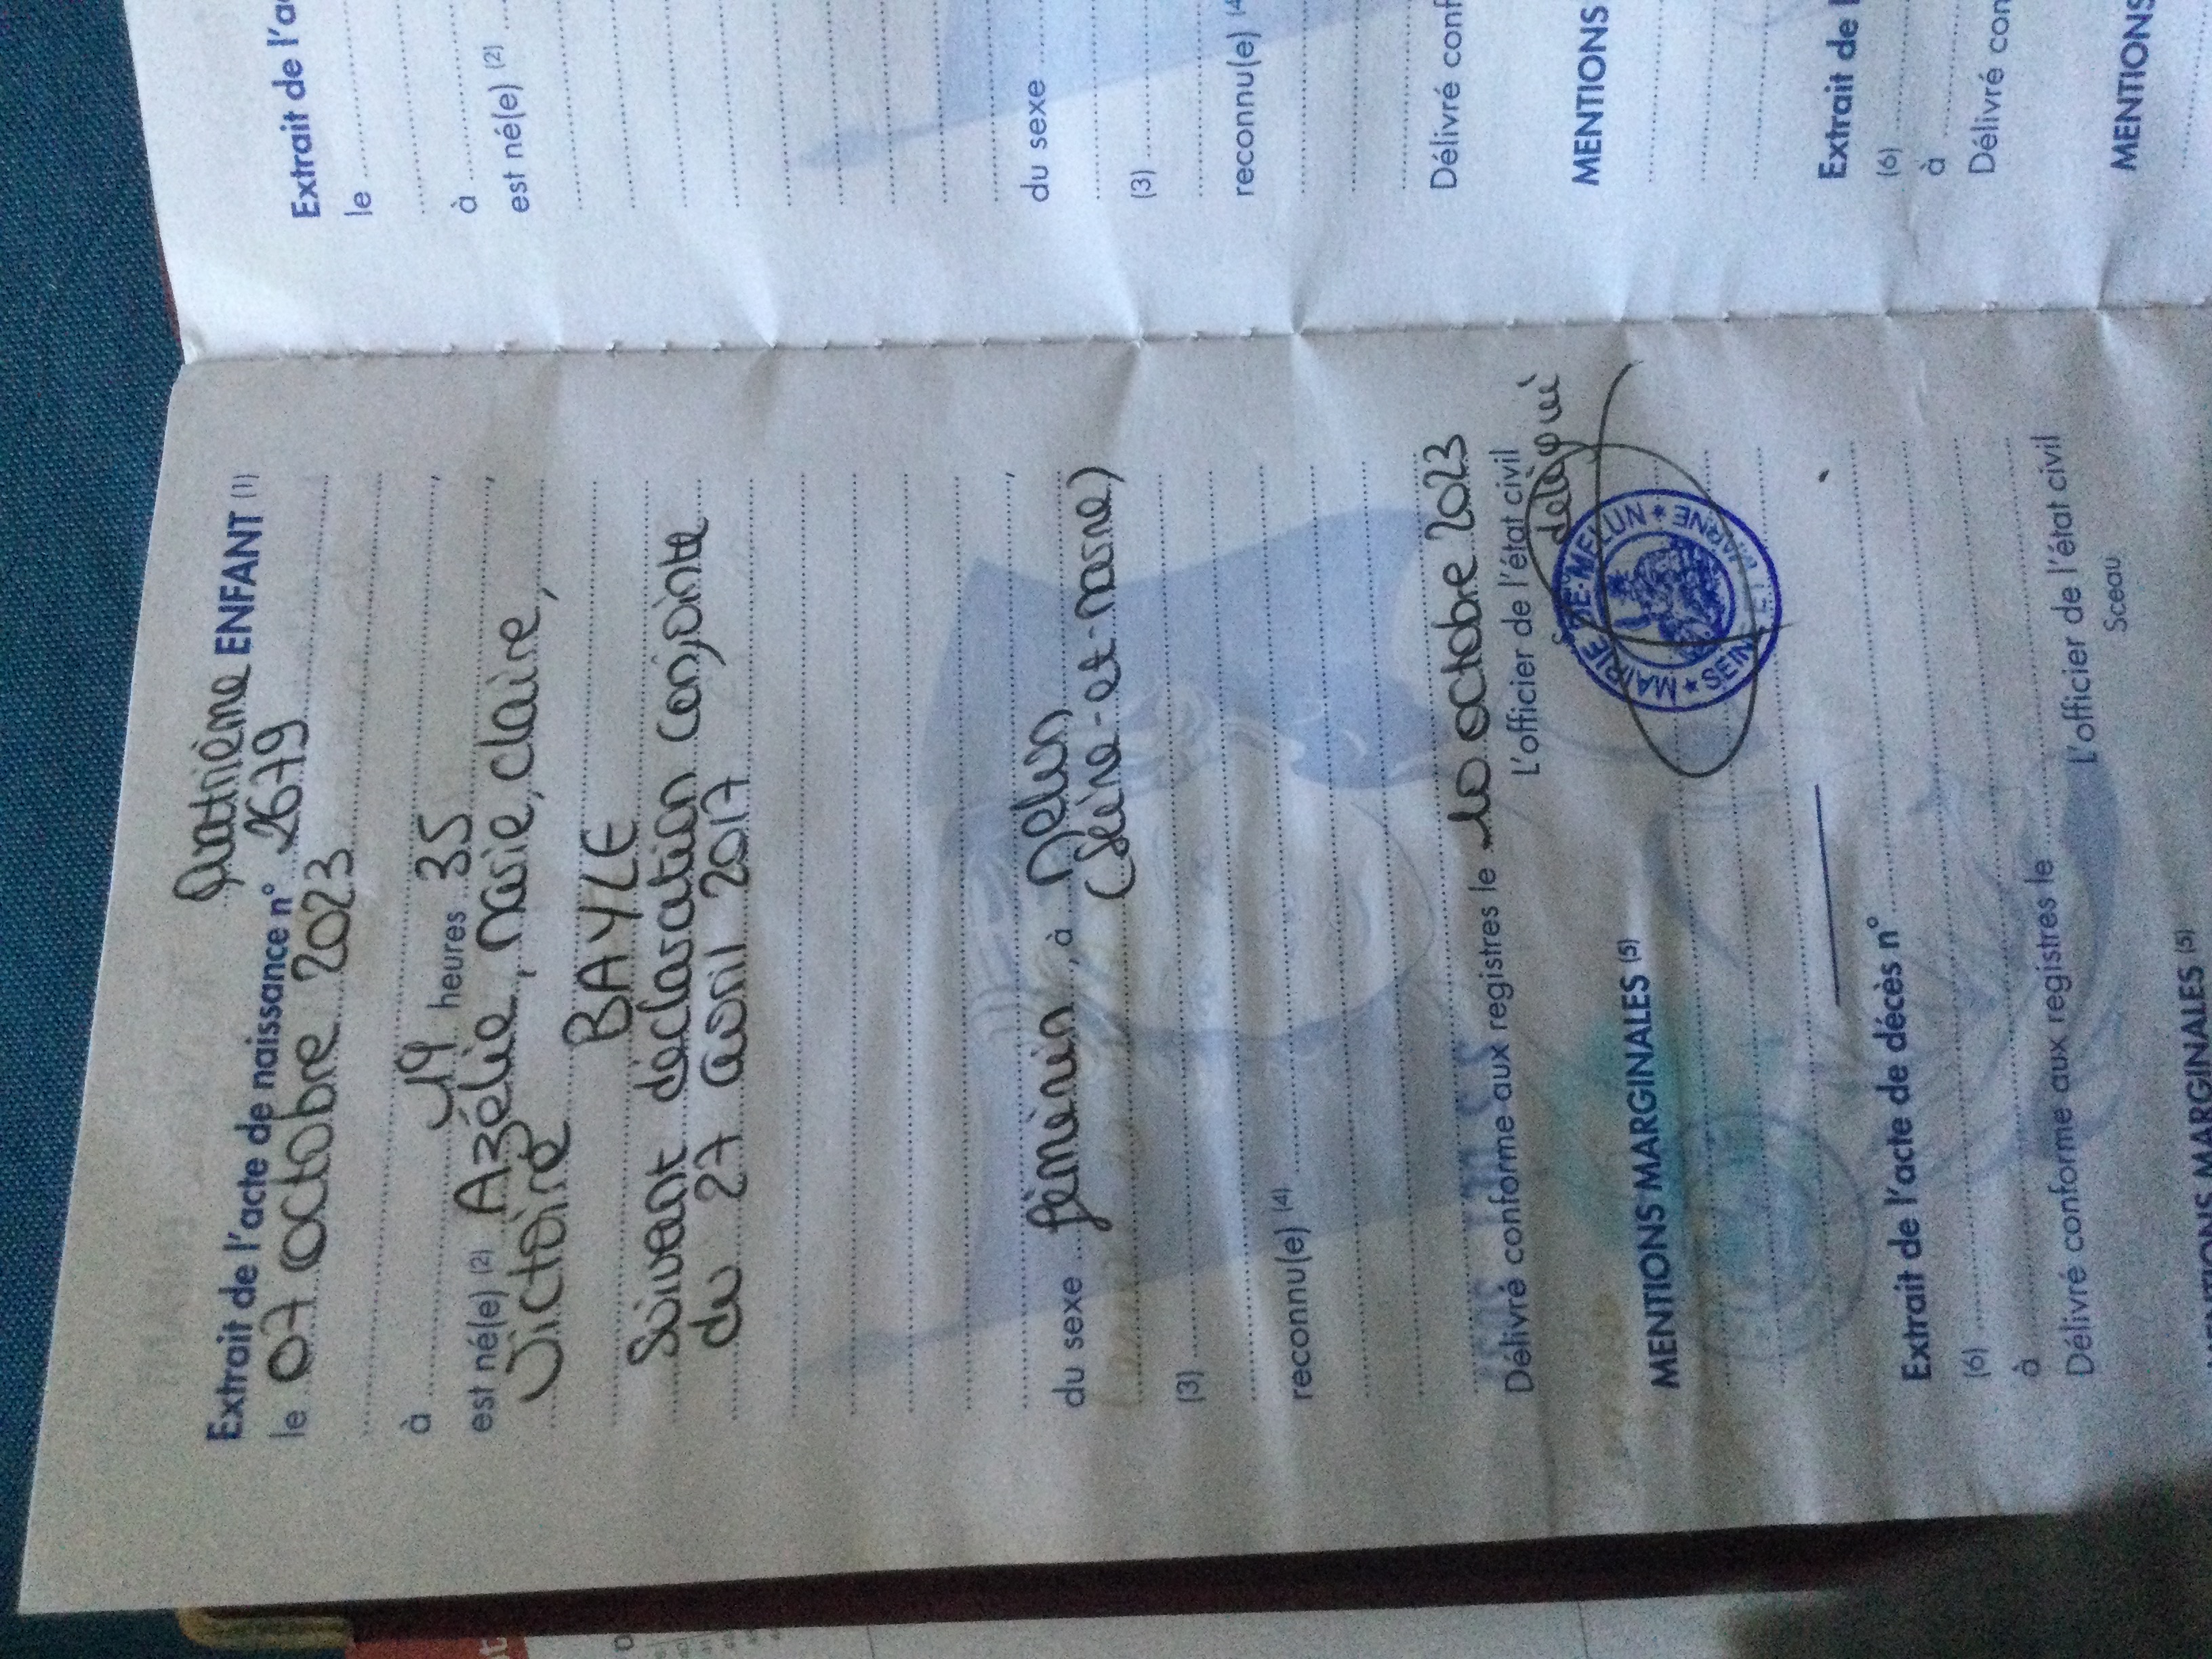 Quatrième ENFANT (1)
Extrait de l'acte de naissance n° 2679
le 07 octobre 2023
à 19 heures 35
est né(e) (2) Azélie, Marie, Claire,
Victoire
BAYLE
Suivant déclaration conjointe
du 27 avril 2017
du sexe féminin, à Melun
(Seine-et-Marne)
(3)
reconnu(e) (4)
Délivré conforme aux registres le 10 octobre 2023
L'officier de l'état civil
délégué
MAIRIE DE MELUN
SEINE ET MARNE
MENTIONS MARGINALES (5)
Extrait de l'acte de décès n°
(6)
à
Délivré conforme aux registres le
L'officier de l'état civil
Sceau
MENTIONS MARGINALES (5)
Extrait de l'a
le
à
est né(e) (2)
du sexe
(3)
reconnu(e) (4
Délivré conf
MENTIONS
Extrait de l
(6)
à
Délivré con
MENTIONS